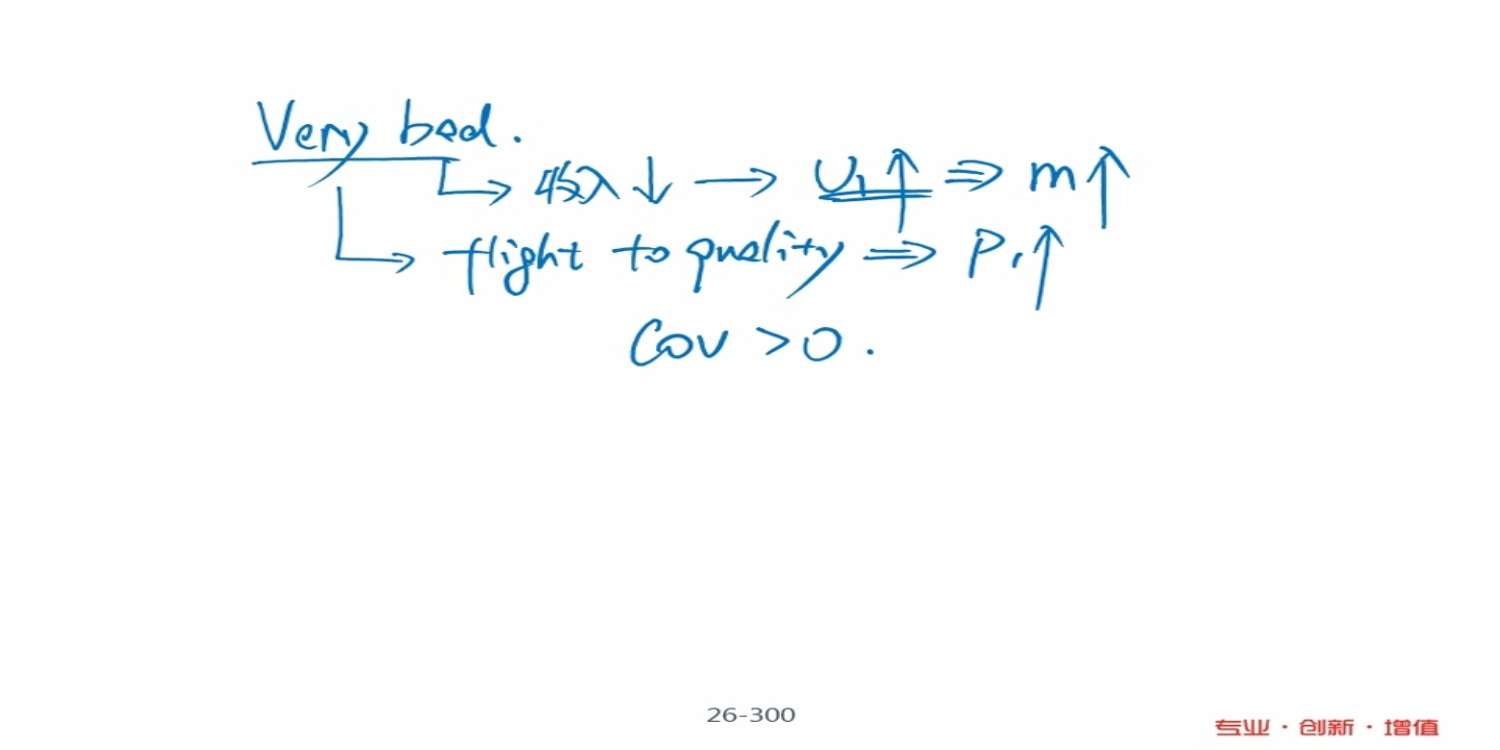 Very bad.
收入↓ → U₁↑ ⇒ m↑
flight to quality ⇒ P₁↑
Cov > 0.
26-300
专业·创新·增值